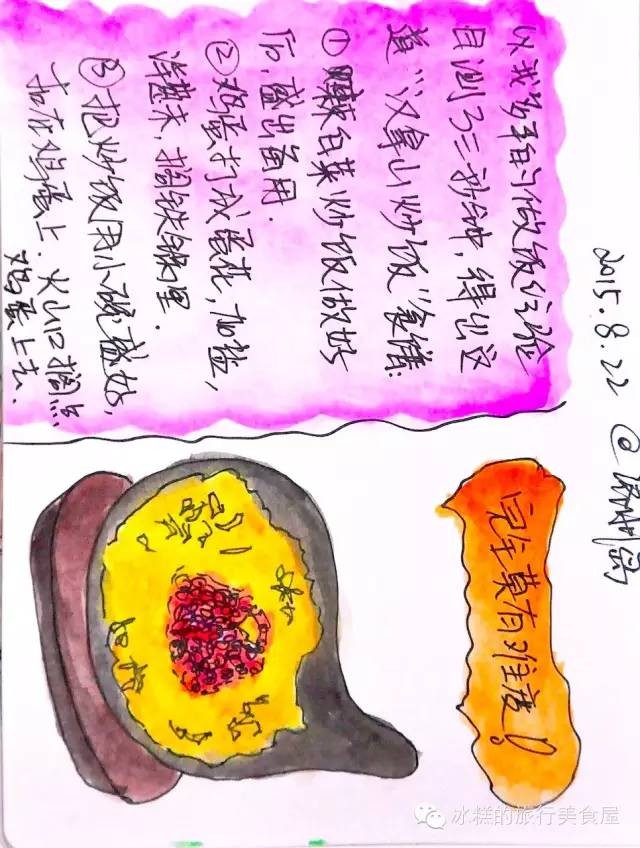 2015.8.22 @济州岛
以我多年的做饭经验
目测了三秒钟，得出这
道“汉拿山炒饭”食谱.
①辣白菜炒饭做好
后，盛出备用.
②鸡蛋打成蛋花，加盐，
洋葱末，搁铁锅里.
③把炒饭用小碗盛好，
扣在鸡蛋上.火山口搁点
鸡蛋上去.
完全莫有难度！
冰糕的旅行美食屋